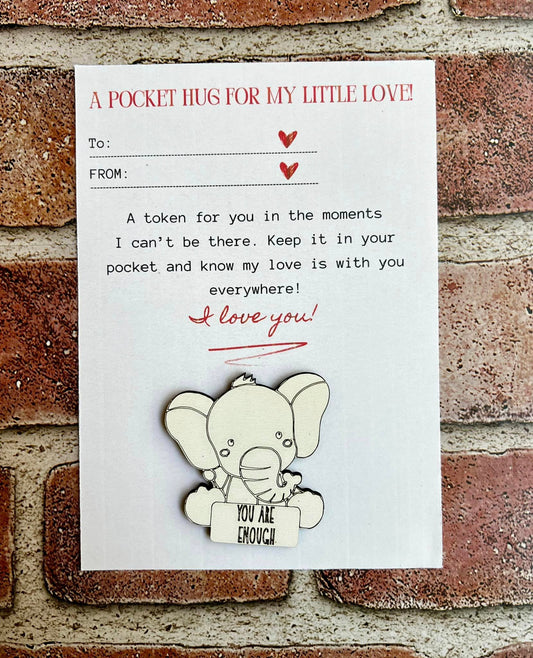 A POCKET HUG FOR MY LITTLE LOVE!
To:
FROM:
A token for you in the moments
I can't be there. Keep it in your
pocket and know my love is with you
everywhere!
I love you!
YOU ARE
ENOUGH